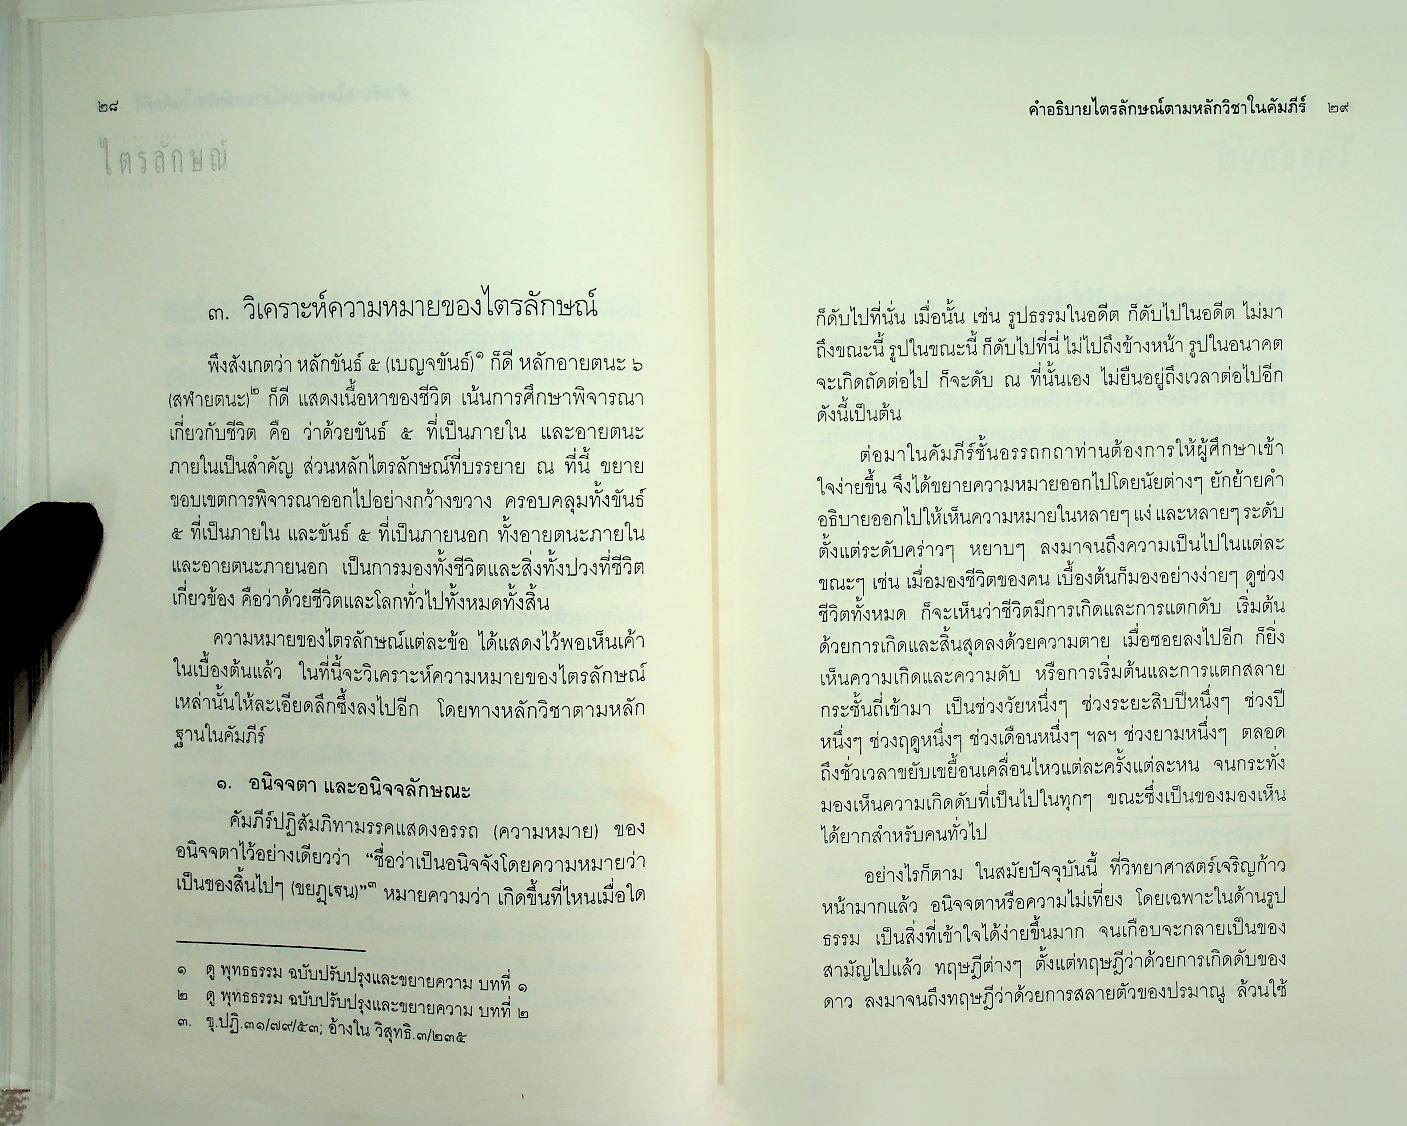 ๒๘
ไตรลักษณ์
๓. วิเคราะห์ความหมายของไตรลักษณ์
พึงสังเกตว่า หลักขันธ์ ๕ (เบญจขันธ์)๑ ก็ดี หลักอายตนะ ๖
(สฬายตนะ)๒ ก็ดี แสดงเนื้อหาของชีวิต เน้นการศึกษาพิจารณา
เกี่ยวกับชีวิต คือ ว่าด้วยขันธ์ ๕ ที่เป็นภายใน และอายตนะ
ภายในเป็นสำคัญ ส่วนหลักไตรลักษณ์ที่บรรยาย ณ ที่นี้ ขยาย
ขอบเขตการพิจารณาออกไปอย่างกว้างขวาง ครอบคลุมทั้งขันธ์
๕ ที่เป็นภายใน และขันธ์ ๕ ที่เป็นภายนอก ทั้งอายตนะภายใน
และอายตนะภายนอก เป็นการมองทั้งชีวิตและสิ่งทั้งปวงที่ชีวิต
เกี่ยวข้อง คือว่าด้วยชีวิตและโลกทั่วไปทั้งหมดทั้งสิ้น
ความหมายของไตรลักษณ์แต่ละข้อ ได้แสดงไว้พอเห็นเค้า
ในเบื้องต้นแล้ว ในที่นี้จะวิเคราะห์ความหมายของไตรลักษณ์
เหล่านั้นให้ละเอียดลึกซึ้งลงไปอีก โดยทางหลักวิชาตามหลัก
ฐานในคัมภีร์
๑. อนิจจตา และอนิจจลักษณะ
คัมภีร์ปฏิสัมภิทามรรคแสดงอรรถ (ความหมาย) ของ
อนิจจตาไว้อย่างเดียวว่า “ชื่อว่าเป็นอนิจจังโดยความหมายว่า
เป็นของสิ้นไปๆ (ขยฏฺเฐน)”๓ หมายความว่า เกิดขึ้นที่ไหนเมื่อใด
๑ ดู พุทธธรรม ฉบับปรับปรุงและขยายความ บทที่ ๑
๒ ดู พุทธธรรม ฉบับปรับปรุงและขยายความ บทที่ ๒
๓. ขุ.ปฏิ.๓๑/๗๙/๕๓; อ้างใน วิสุทธิ.๓/๒๓๕
คำอธิบายไตรลักษณ์ตามหลักวิชาในคัมภีร์ ๒๙
ก็ดับไปที่นั่น เมื่อนั้น เช่น รูปธรรมในอดีต ก็ดับไปในอดีต ไม่มา
ถึงขณะนี้ รูปในขณะนี้ ก็ดับไปที่นี่ ไม่ไปถึงข้างหน้า รูปในอนาคต
จะเกิดถัดต่อไป ก็จะดับ ณ ที่นั้นเอง ไม่ยืนอยู่ถึงเวลาต่อไปอีก
ดังนี้เป็นต้น
ต่อมาในคัมภีร์ชั้นอรรถกถาท่านต้องการให้ผู้ศึกษาเข้า
ใจง่ายขึ้น จึงได้ขยายความหมายออกไปโดยนัยต่างๆ ยักย้ายคำ
อธิบายออกไปให้เห็นความหมายในหลายๆ แง่ และหลายๆ ระดับ
ตั้งแต่ระดับคร่าวๆ หยาบๆ ลงมาจนถึงความเป็นไปในแต่ละ
ขณะๆ เช่น เมื่อมองชีวิตของคน เบื้องต้นก็มองอย่างง่ายๆ ดูช่วง
ชีวิตทั้งหมด ก็จะเห็นว่าชีวิตมีการเกิดและการแตกดับ เริ่มต้น
ด้วยการเกิดและสิ้นสุดลงด้วยความตาย เมื่อซอยลงไปอีก ก็ยิ่ง
เห็นความเกิดและความดับ หรือการเริ่มต้นและการแตกสลาย
กระชั้นถี่เข้ามา เป็นช่วงวัยหนึ่งๆ ช่วงระยะสิบปีหนึ่งๆ ช่วงปี
หนึ่งๆ ช่วงฤดูหนึ่งๆ ช่วงเดือนหนึ่งๆ ฯลฯ ช่วงยามหนึ่งๆ ตลอด
ถึงชั่วเวลาขยับเขยื้อนเคลื่อนไหวแต่ละครั้งแต่ละหน จนกระทั่ง
มองเห็นความเกิดดับที่เป็นไปในทุกๆ ขณะซึ่งเป็นของมองเห็น
ได้ยากสำหรับคนทั่วไป
อย่างไรก็ตาม ในสมัยปัจจุบันนี้ ที่วิทยาศาสตร์เจริญก้าว
หน้ามากแล้ว อนิจจตาหรือความไม่เที่ยง โดยเฉพาะในด้านรูป
ธรรม เป็นสิ่งที่เข้าใจได้ง่ายขึ้นมาก จนเกือบจะกลายเป็นของ
สามัญไปแล้ว ทฤษฎีต่างๆ ตั้งแต่ทฤษฎีว่าด้วยการเกิดดับของ
ดาว ลงมาจนถึงทฤษฎีว่าด้วยการสลายตัวของปรมาณู ล้วนใช้